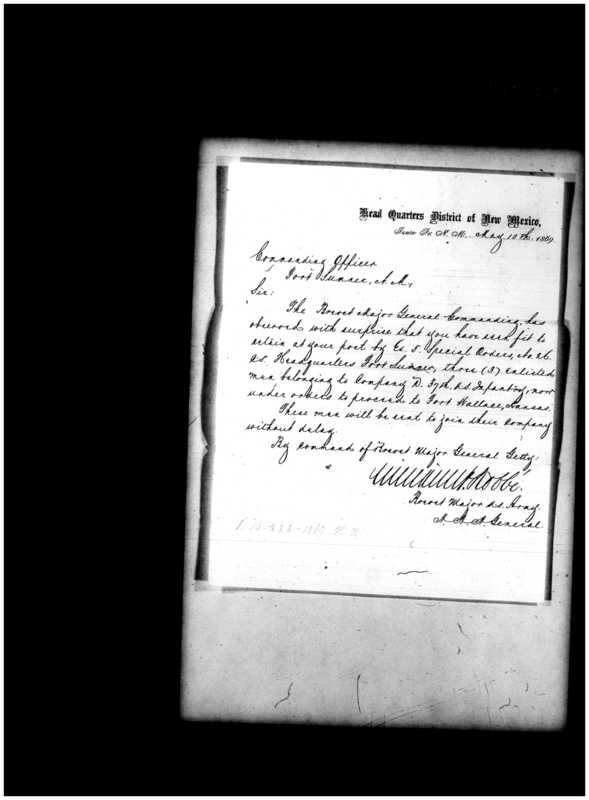 Head Quarters District of New Mexico,
Santa Fe, N. M., May 10th, 1869
Commanding Officer
Fort Sumner, N. M,
Sir:
The Brevet Major General Commanding, has
observed with surprise that you have seen fit to
retain at your post by Special Orders, No 26.
Headquarters Fort Sumner, three (3) enlisted
men belonging to Company D. 37th, U.S. Infantry, now
under orders to proceed to Fort Wallace, Kansas.
These men will be sent to join their Company
without delay.
By command of Brevet Major General Getty:
William A. Kobbé.
Brevet Major U.S. Army
A. A. A. General.